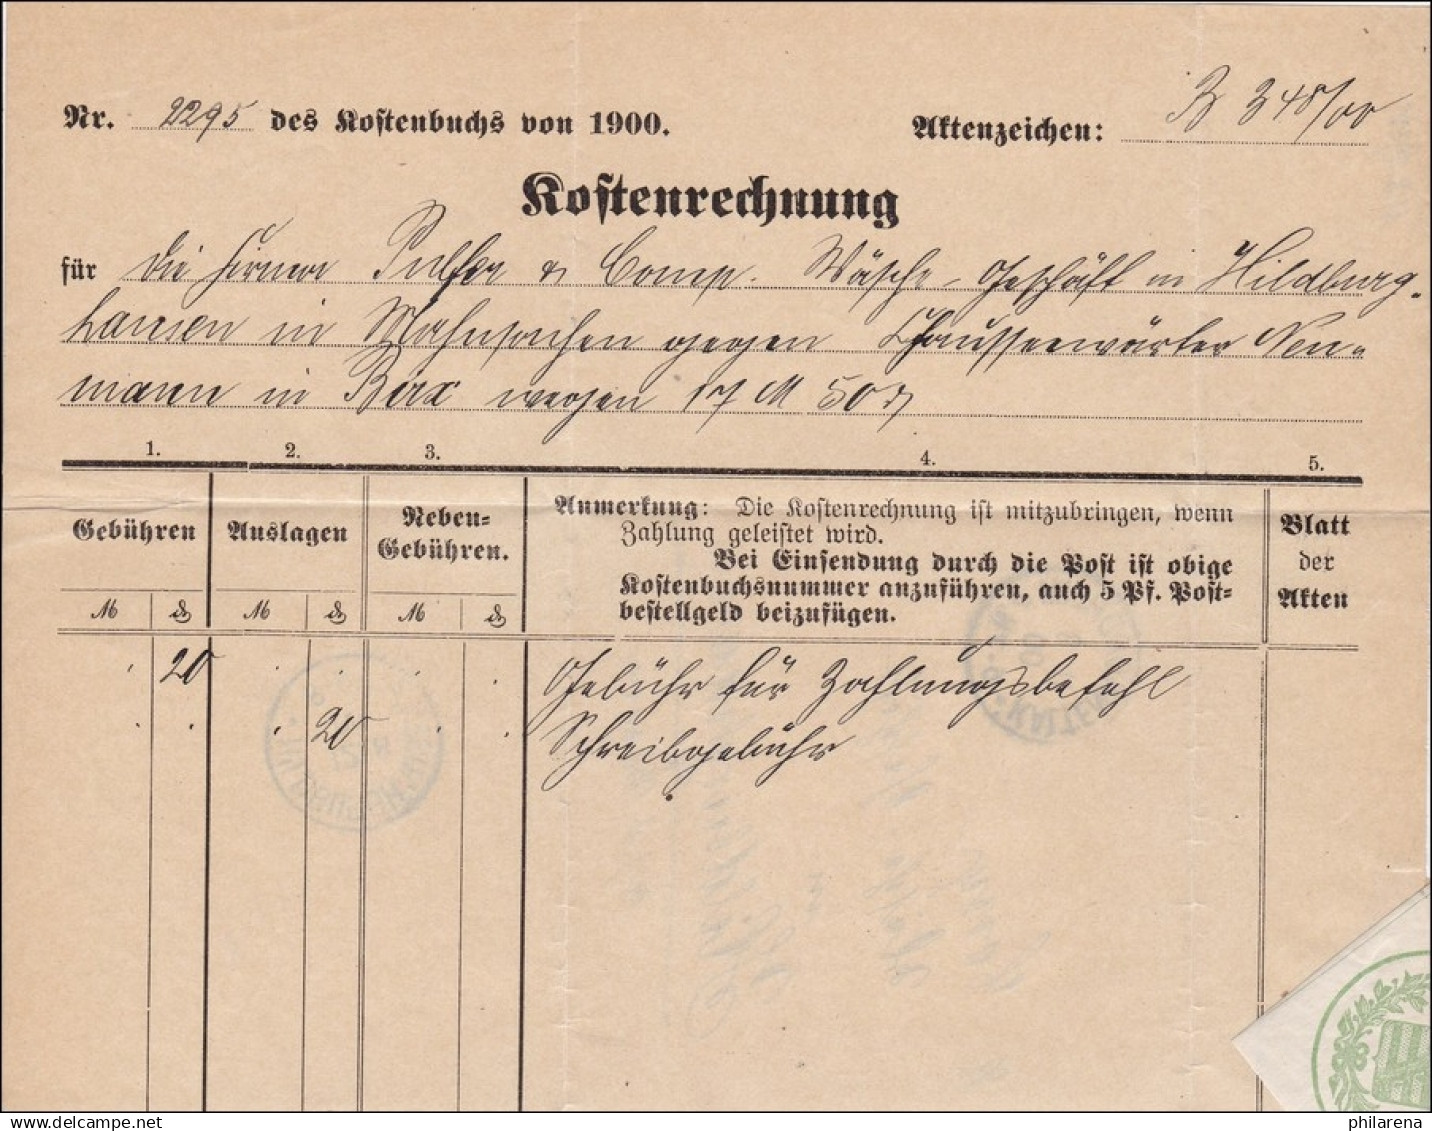 Nr. 2295 des Kostenbuchs von 1900. Aktenzeichen: B 348/00
Kostenrechnung
für die Firma & Comp. Wäsche-Geschäft in Hildburg-
hausen in Mahnsachen gegen Chausseewärter Neu-
mann in Birx wegen 17 M 50 ₰
1. 2. 3. 4. 5.
Gebühren Auslagen Neben-Gebühren.
M ₰ M ₰ M ₰
Anmerkung: Die Kostenrechnung ist mitzubringen, wenn
Zahlung geleistet wird.
Bei Einsendung durch die Post ist obige
Kostenbuchsnummer anzuführen, auch 5 Pf. Post-
bestellgeld beizufügen.
Blatt
der
Akten
20 Gebühr für Zahlungsbefehl
20 Schreibgebühr
www.delcampe.net
philarena